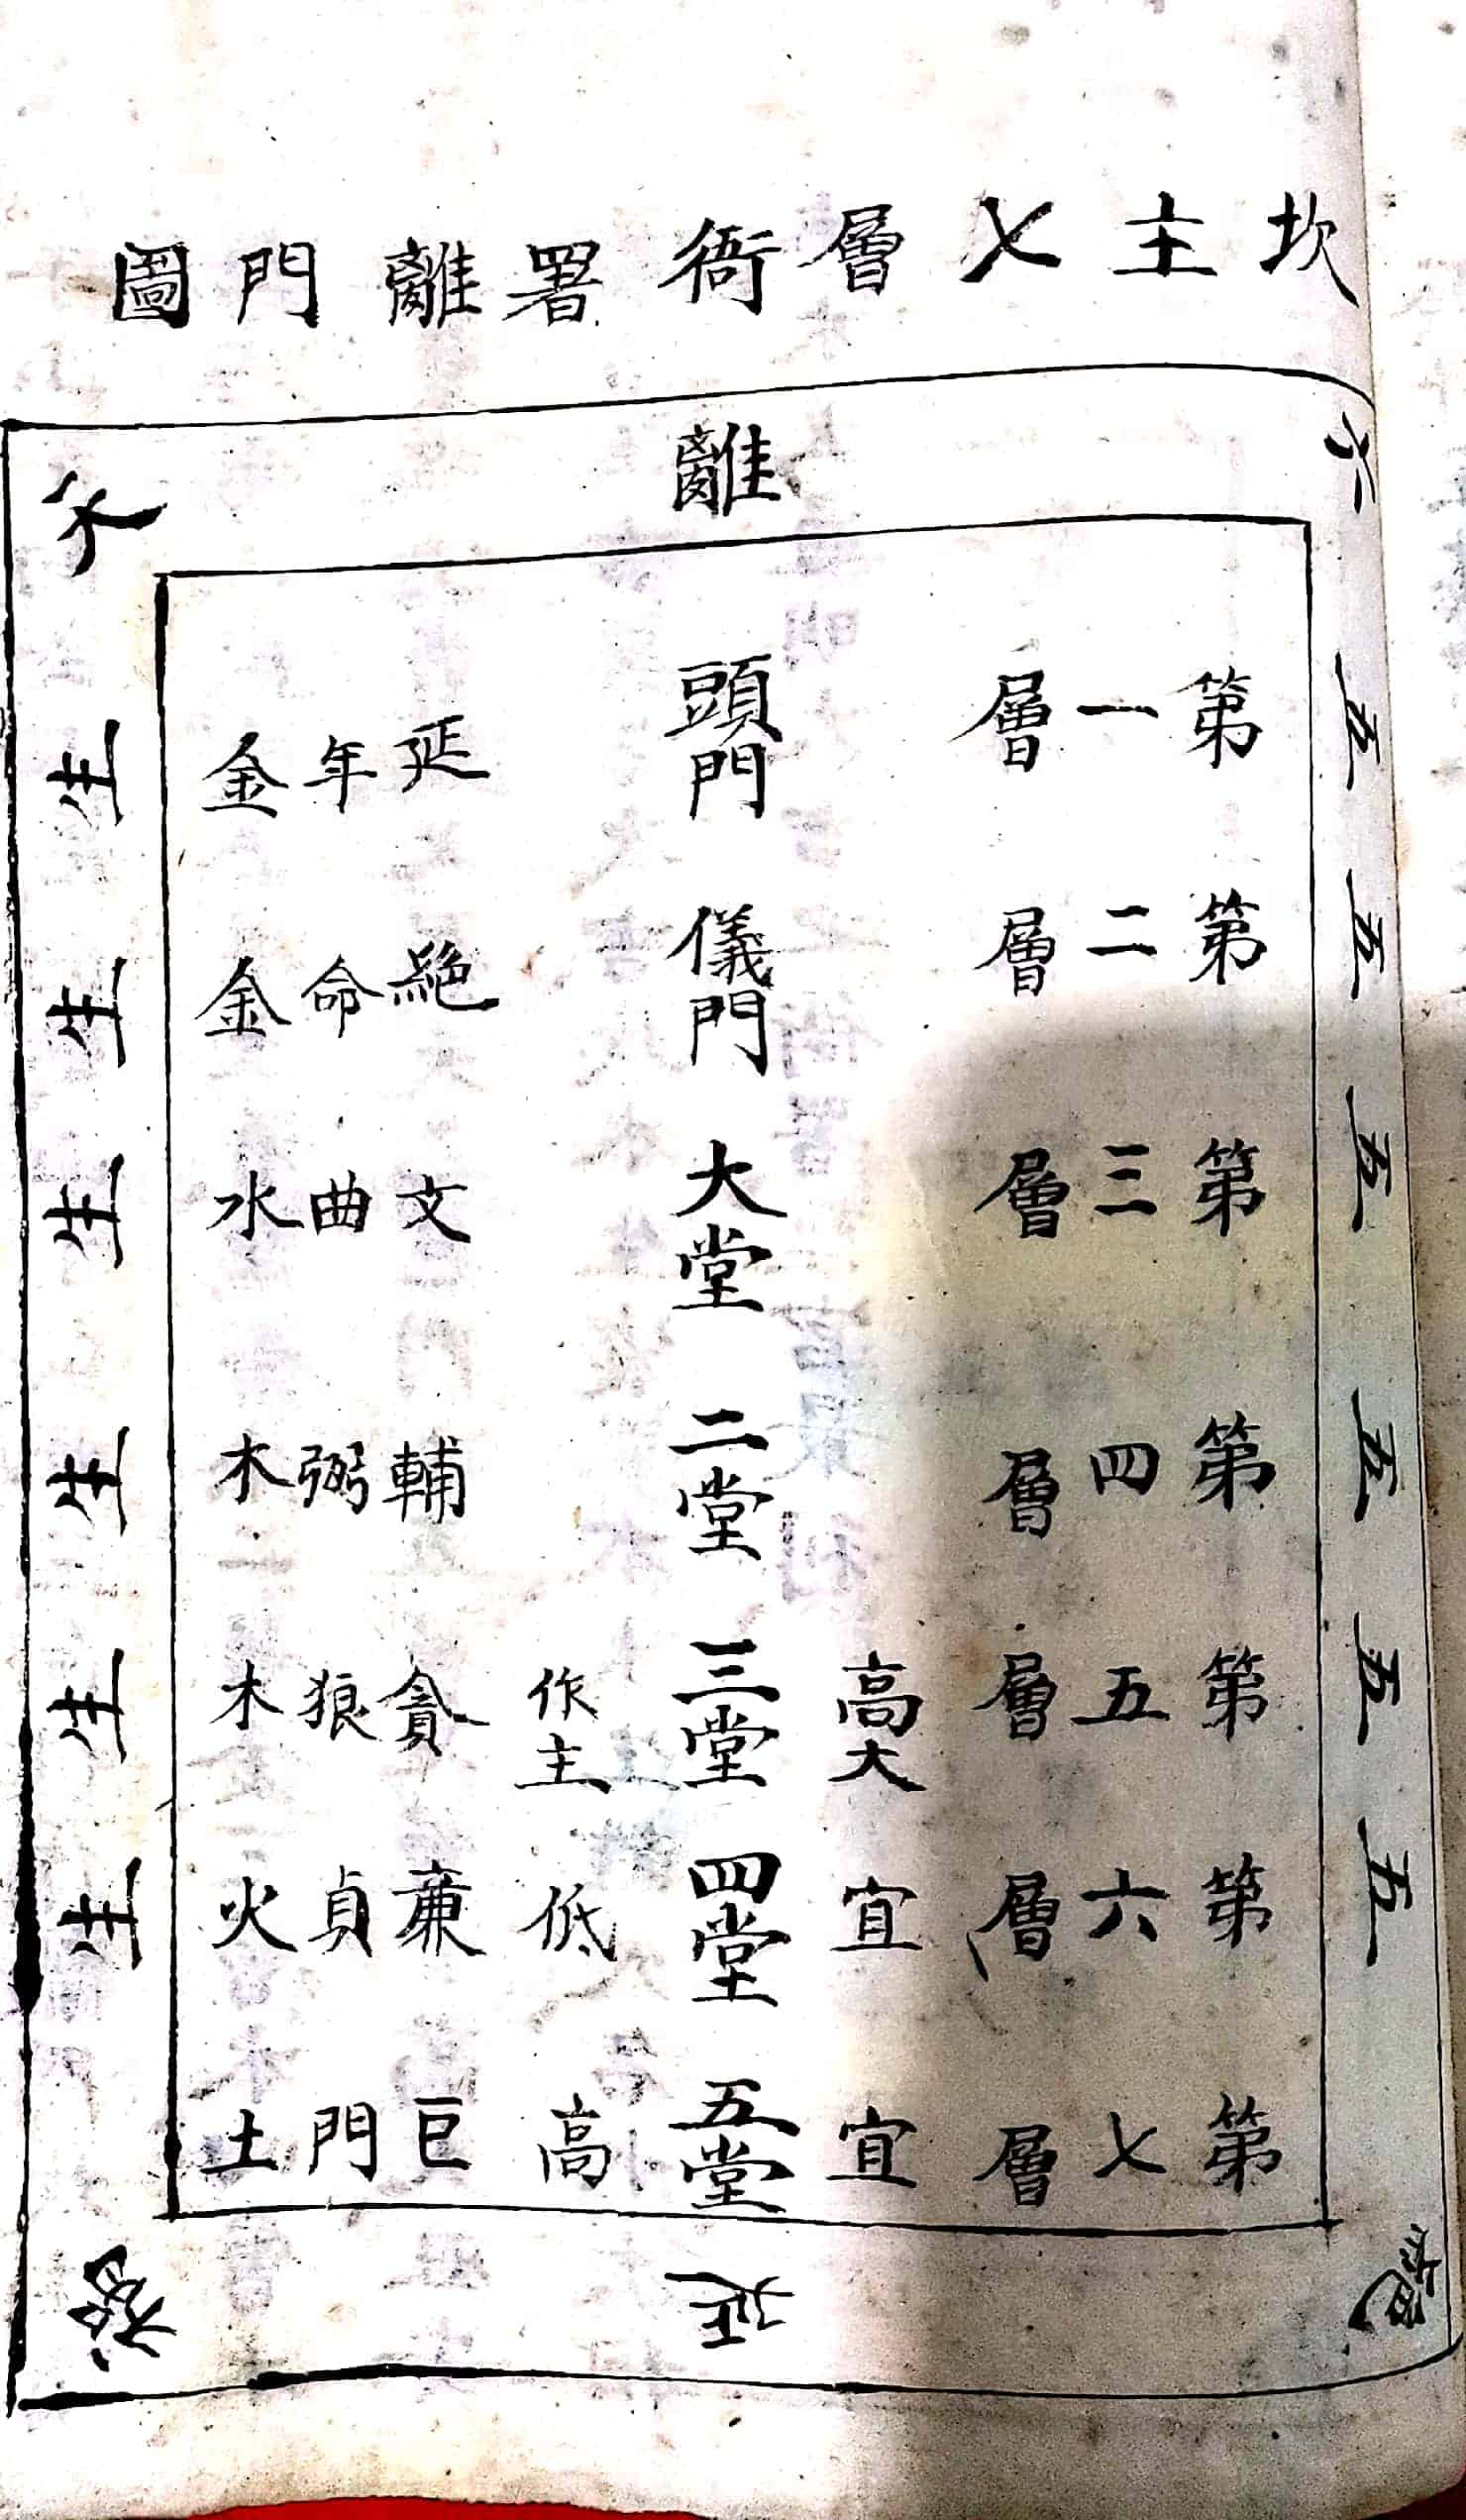 坎主七層衙署離門圖
離
六
五
五
五
五
五
五
絕
第一層 頭門 延年金
第二層 儀門 絕命金
第三層 大堂 文曲水
第四層 二堂 輔弼木
第五層 高大 三堂 作主 貪狼木
第六層 宜 四堂 低 廉貞火
第七層 宜 五堂 高 巨門土
生
生
生
生
生
生
禍
延